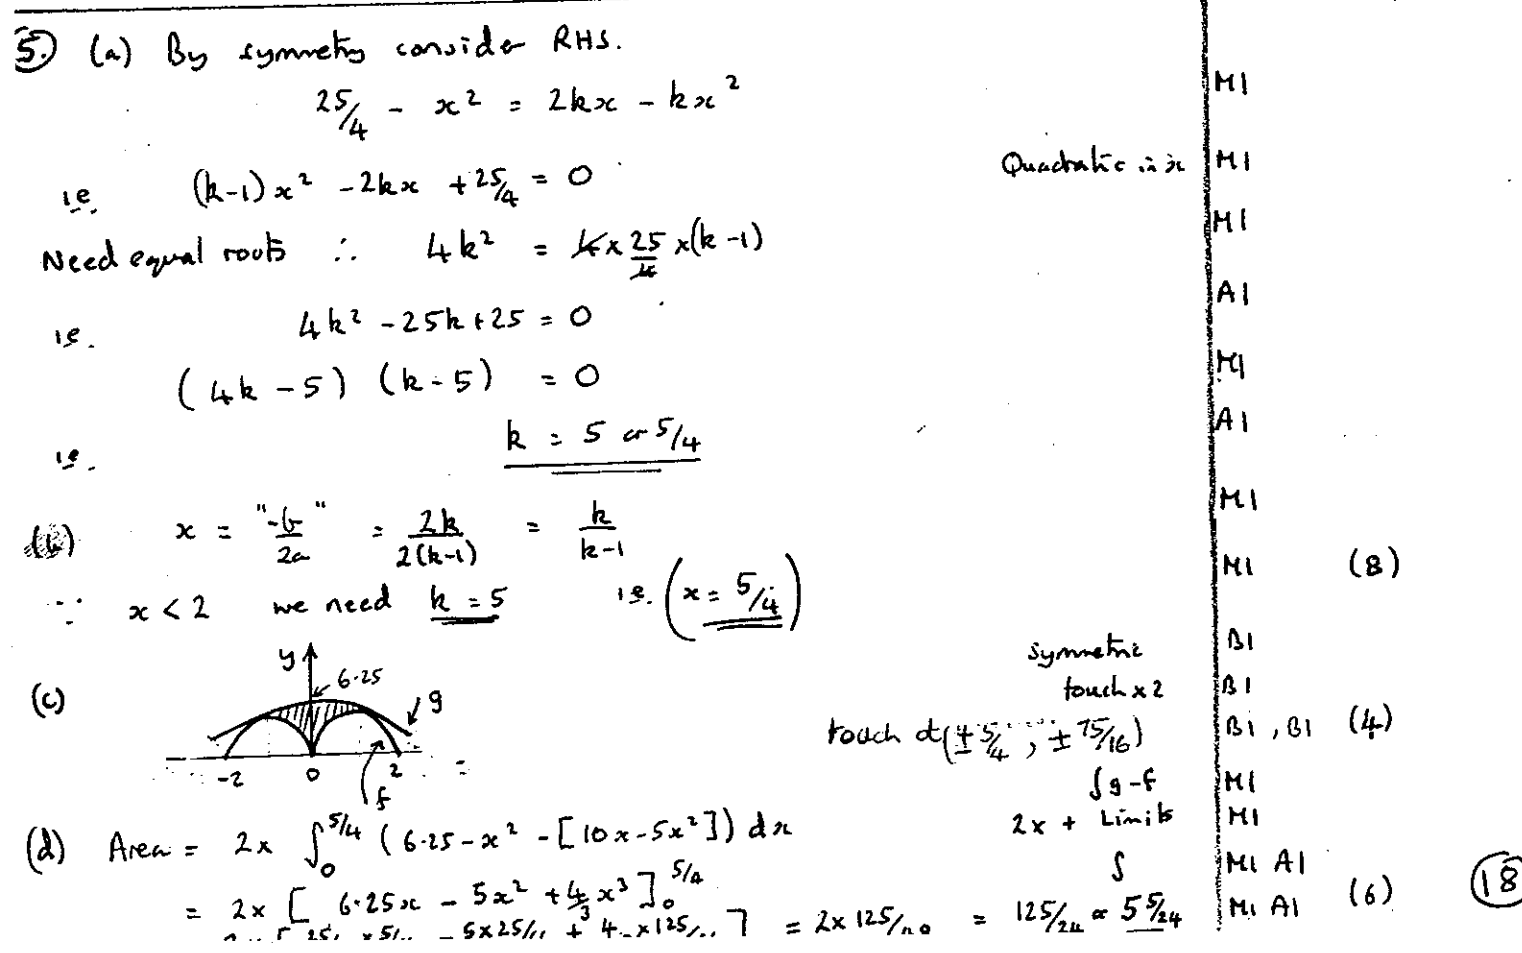 5. (a) By symmetry consider RHS.
25/4 - x² = 2kx - kx² M1
i.e. (k-1)x² - 2kx + 25/4 = 0 Quadratic in x M1
Need equal roots ∴ 4k² = 4 × 25/4 × (k-1) M1
i.e. 4k² - 25k + 25 = 0 A1
(4k - 5) (k - 5) = 0 M1
i.e. k = 5 or 5/4 A1
(b) x = "-b"/2a = 2k/2(k-1) = k/k-1 M1
∵ x < 2 we need k = 5 i.e. (x = 5/4) M1 (8)
(c) y 6.25 g -2 0 2 f
symmetric B1
touch x 2 B1
touch at (± 5/4, ± 75/16) B1, B1 (4)
∫g-f M1
(d) Area = 2× ∫₀^5/4 (6.25 - x² - [10x - 5x²]) dx 2x + Limits M1
∫ M1 A1
= 2× [6.25x - 5x² + 4/3 x³]₀^5/4 (6) (18)
= 125/24 or 5 5/24 M1 A1